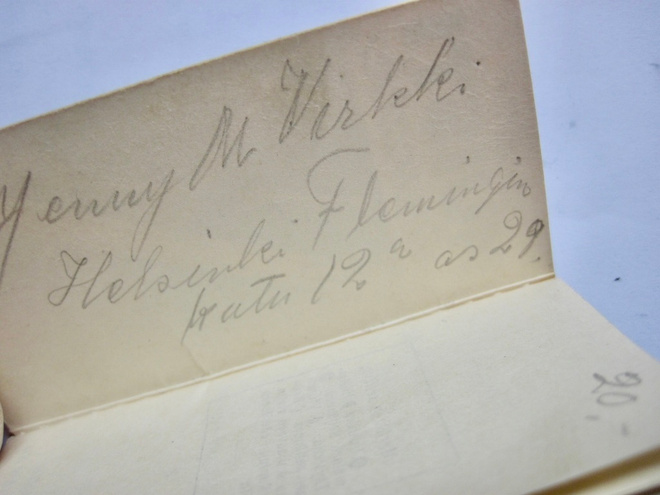 Jenny M. Virkki
Helsinki Flemingin
katu 12 a as 29.
20,-